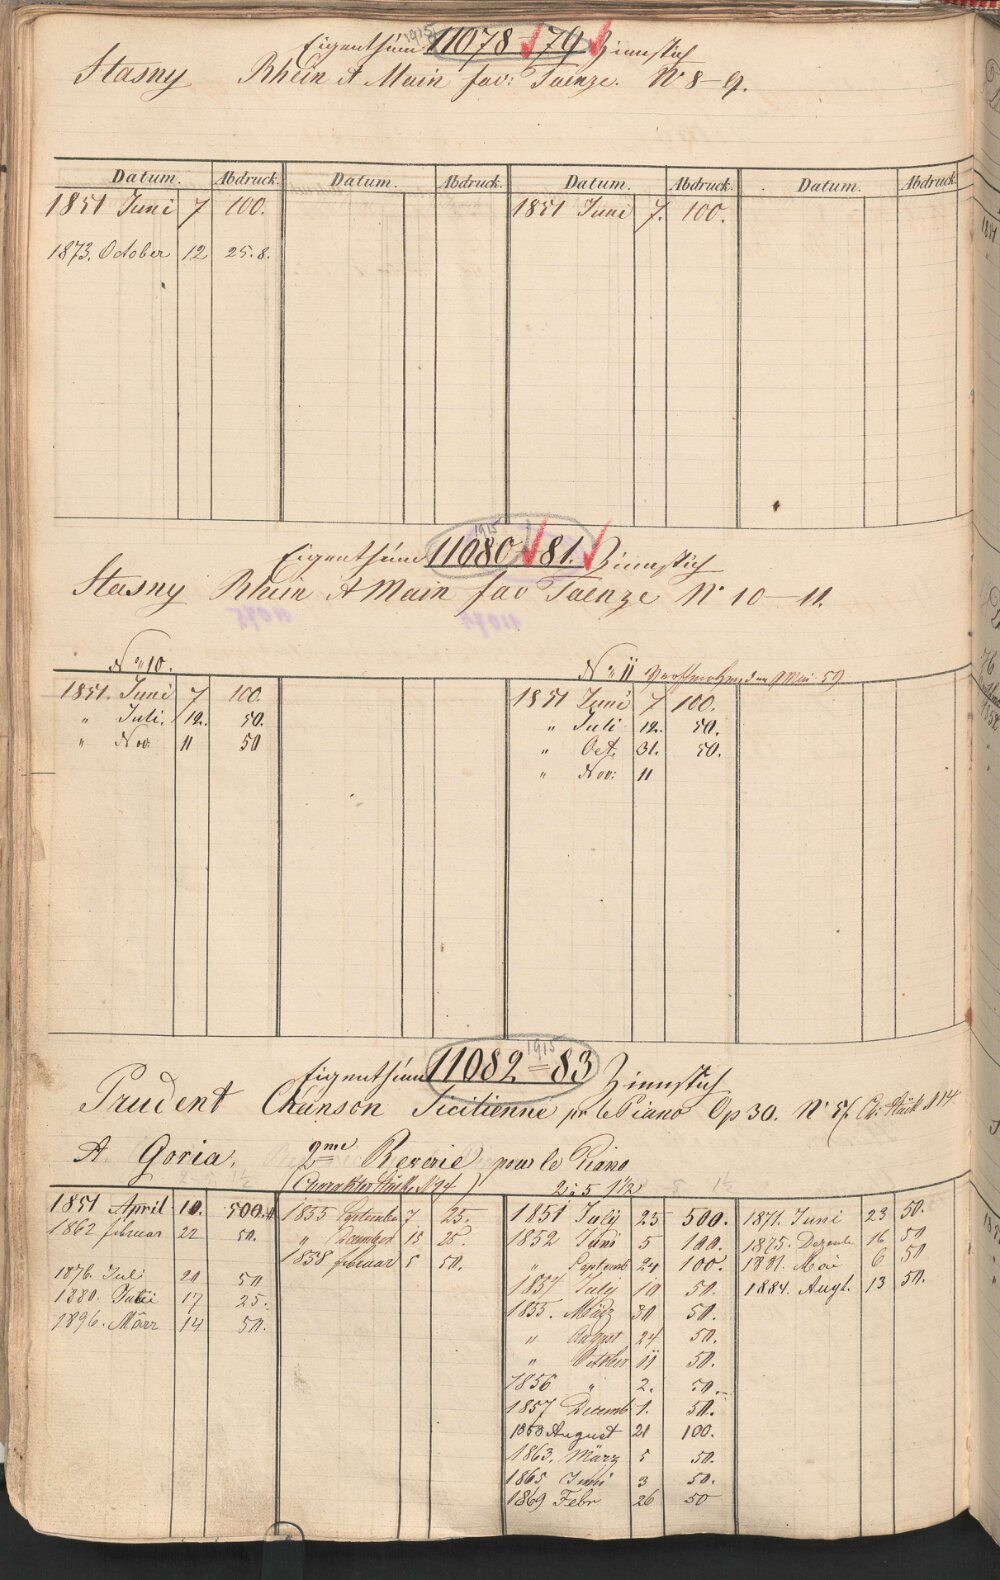 1915
Eigenthum 11078-79 Zinnstich
Stasny Rhein & Main fav: Taenze. No 8-9.
Datum. Abdruck. Datum. Abdruck. Datum. Abdruck. Datum. Abdruck.
1851 Juni 7 100. 1851 Juni 7. 100.
1873. October 12 25.8.
1915
Eigenthum 11080 81. Zinnstich
Stasny Rhein & Main fav Taenze No 10-11.
No 10. No 11
1851. Juni 7 100. 1851 Juni 7 100.
" Juli. 12. 50. " Juli 12. 50.
" Nov. 11 50 " Oct. 31. 50.
" Nov: 11
1915
Eigenthum 11082=83 Zinnstich
Prudent Chanson Sicilienne pr le Piano Op 30.
A. Goria. 2me Reverie pour le Piano
1851 April 10. 500. 1855 September 7 25. 1851 July 25 500. 1871. Juni 23 50.
1862 februar 22 50. " December 15 25. 1852 Juni 5 100. 1875. Dezembr 16 50
1876. Juli 20 50 1858 februar 5 50. " Septemb 24 100. 1881. Mai 6 50
1880. Juli 17 25. 1854 July 10 50. 1884. Augt. 13 50.
1896. März 14 50. 1855. März 30 50.
" August 24 50.
" October 11 50.
1856 " 2. 50.
1857 Decemb 1. 50.
1858 August 21 100.
1863. März 5 50.
1865 Juni 3 50.
1869 Febr 26 50